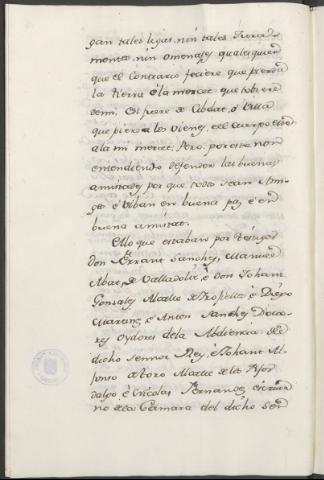 gan tales ligas, nin tales Jura-
mentos, nin omenages qualesquier
que el Contrario feciere, que pierda
la tierra è la merced que tobiere
de mi. Et si fuere de Cibdat, ò Villa
que pierda los vienes, è el cuerpo este
a la mi merced. Pero por esto non
entendiendo defender las buenas
amistades, por que todos sean Ami-
gos è viban en buena paz è en
buena amistat.
A esto que estaban por testigos
don Ferrant Sanches, Manuel
Abat de Valladolit, è Don Johan
Gonzales Alcalle de è Diego
Martinez, è Anton Sanches Docto-
res Oydores de la Abdiencia del
dicho Sennor Rey, è Johant Al-
fonso de Toro Alcalle de los Fijos
dalgo, è Nicolas Fernandez escriva
no de la Camara del dicho Sennor